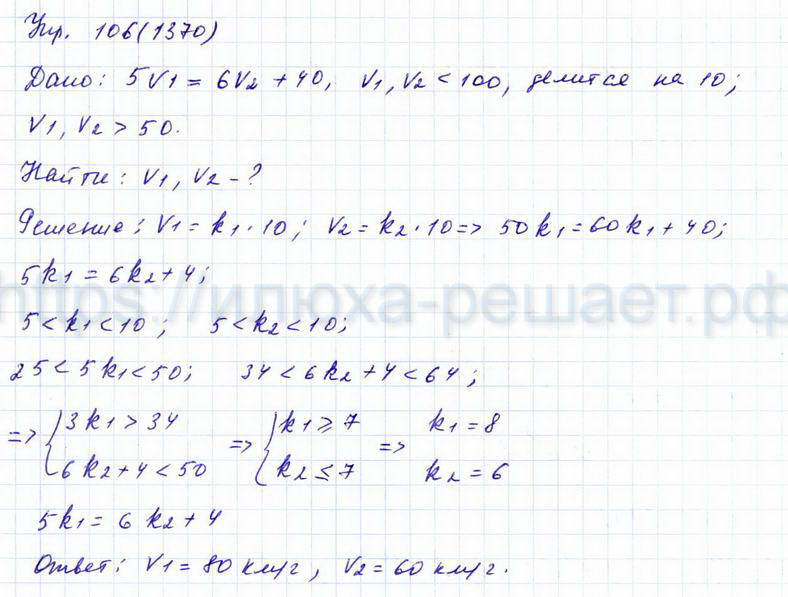 Упр. 106(1370)
Дано: 5V1 = 6V2 + 40, V1, V2 < 100, делится на 10;
V1, V2 > 50.
Найти: V1, V2 - ?
Решение: V1 = k1 · 10; V2 = k2 · 10 => 50k1 = 60k1 + 40;
5k1 = 6k2 + 4;
https://илюха-решает.рф
5 < k1 < 10; 5 < k2 < 10;
25 < 5k1 < 50; 34 < 6k2 + 4 < 64;
=> { 3k1 > 34 => { k1 ≥ 7 => k1 = 8
6k2 + 4 < 50 k2 ≤ 7 k2 = 6
5k1 = 6k2 + 4
Ответ: V1 = 80 км/г, V2 = 60 км/г.